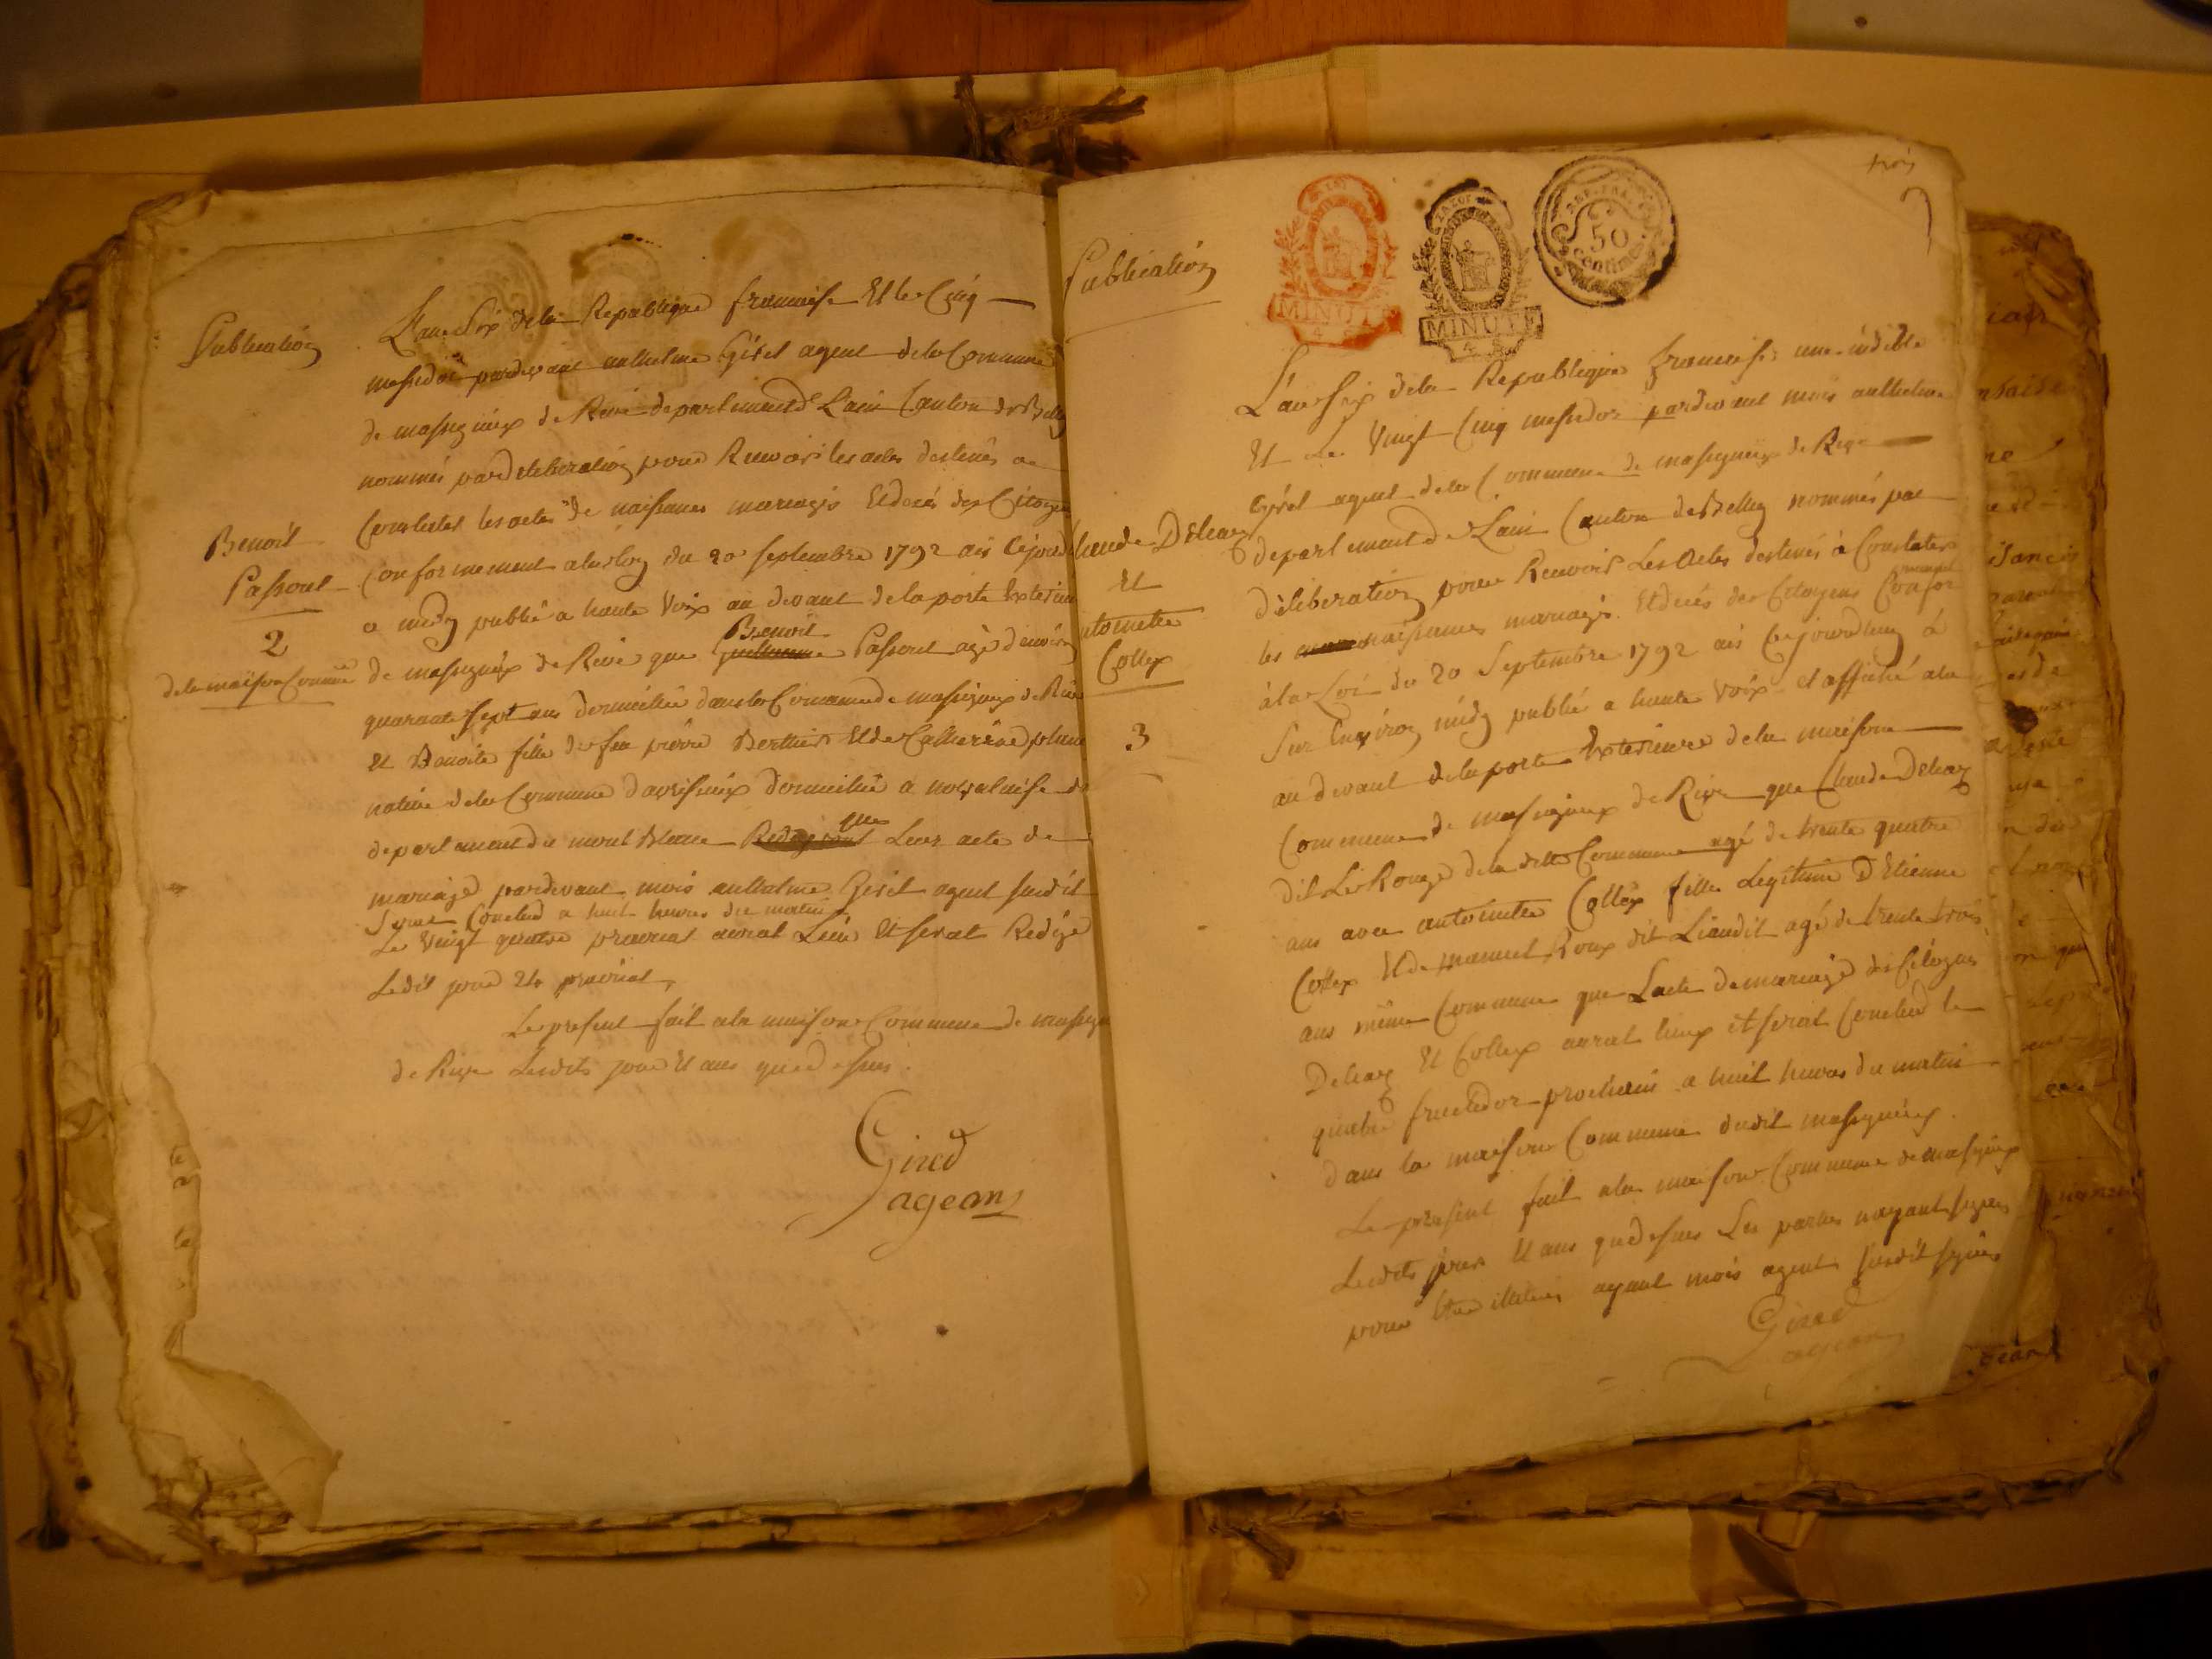 Publication
L'an Six de la Republique francaise Et le Cinq
messidor pardevant anthelme Girel agent dela Commune
de massignieux de Rive departement de Lain Canton de Belley
nommé par deliberation pour Recevoir les actes destinés a
Constater les actes de naissances mariages Et décès des Citoyens
Benoit
Passout
2
dela maison Commune
Conformement a la loy du 20 septembre 1792 ais Cejourd
a midy publié a haute Voix au devant de la porte Exterieure
de massignieux de Rive que Benoit Passout agé denviron
quarante sept ans domicilié dans la Commune de massignieux de Rive
Et Benoite fille de feu pierre Berthier Et de Catherine
native dela Commune domiciliée a
departement du mont Blanc que Leur acte de
mariage pardevant mois anthelme Girel agent susdit
Serat Conclud a huit heures du matin
Le Vingt quatre prairial aurat Lieu Et serat Redigé
Ledit jour 24 prairial
Le present fait ala maison Commune de massign
de Rive Lesdits jour Et ans que dessus
Girel
agean
trois
3
MINUTE
MINUTE
REP. FRA.
50
centimes
Publication
Claude Deleaz
Et
antoinette
Collex
3
L'an six dela Republique francaise une indible
Et Le Vingt Cinq messidor pardevant mois anthelme
Girel agent dela Commune de massignieux de Rive
departement de Lain Canton de Belley nommés par
deliberation pour Recevoir Les Actes destinés à Constater
les naissances mariages Et decés des Citoyens Confor
mement
à la Loi du 20 Septembre 1792 ais Cejourdhuy à
Sur Environ midy publié a haute Voix et affiché ala
au devant dela porte Exterieure dela maison
Commune de massignieux de Rive que Claude Deleaz
dit Le Rouge dela ditte Commune agé de trente quatre
ans avec antoinette Collex fille Legitime D'Etienne
Collex Et de Roux dit Liaudit agé de trente trois
ans même Commune que Lacte de mariage des Citoyens
Deleaz Et Collex aurat lieux et serat Conclud le
quatre fructidor prochain a huit heures du matin
dans la maison Commune dudit massignieux
Le present fait ala maison Commune de massignieux
Lesdits jour Et ans que dessus Les parties nayant signés
pour Etre illiterés ayant mois agent susdit signés
Girel
agean